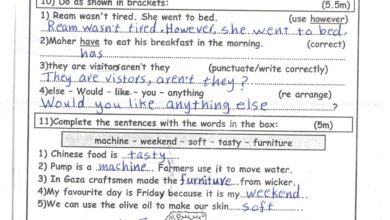 10) Do as shown in brackets: (5.5m)
1) Ream wasn't tired. She went to bed. (use however)
Ream wasn't tired. However, she went to bed.
2)Maher have to eat his breakfast in the morning. (correct)
has
3)they are visitorsaren't they (punctuate/write correctly)
They are vistors, aren't they?
4)else – Would – like – you - anything (re arrange)
Would you like anything else ?
11)Complete the sentences with the words in the box: (5m)
machine - weekend - soft - tasty - furniture
1) Chinese food is ..tasty....
2) Pump is a machine... Farmers use it to move water.
3) In Gaza craftsmen made the furniture..from wicker.
4)My favourite day is Friday because it is my weekend...
5)We can use the olive oil to make our skin.....soft........